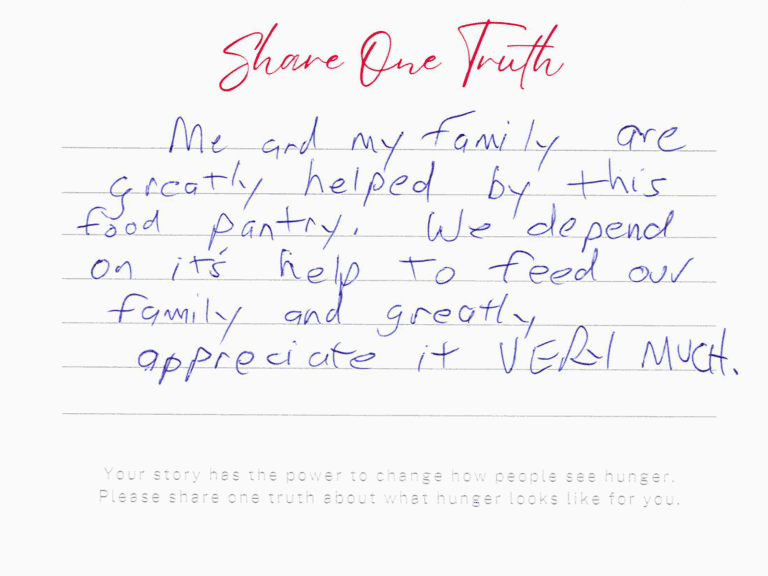 Share One Truth
Me and my family are
greatly helped by this
food pantry. We depend
on it's help to feed our
family and greatly
appreciate it VERY MUCH.
Your story has the power to change how people see hunger.
Please share one truth about what hunger looks like for you.